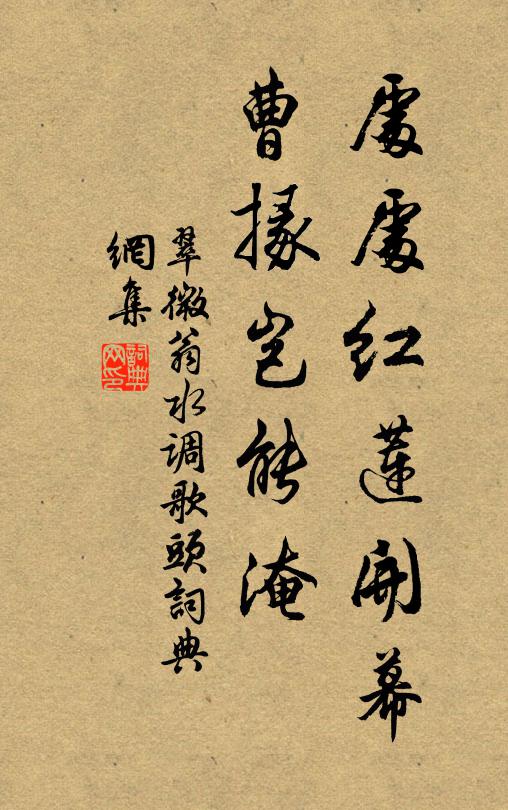 處處紅蓮開幕
曹掾豈能淹
翠微翁水调歌頭詞典
網集
詞典
网印